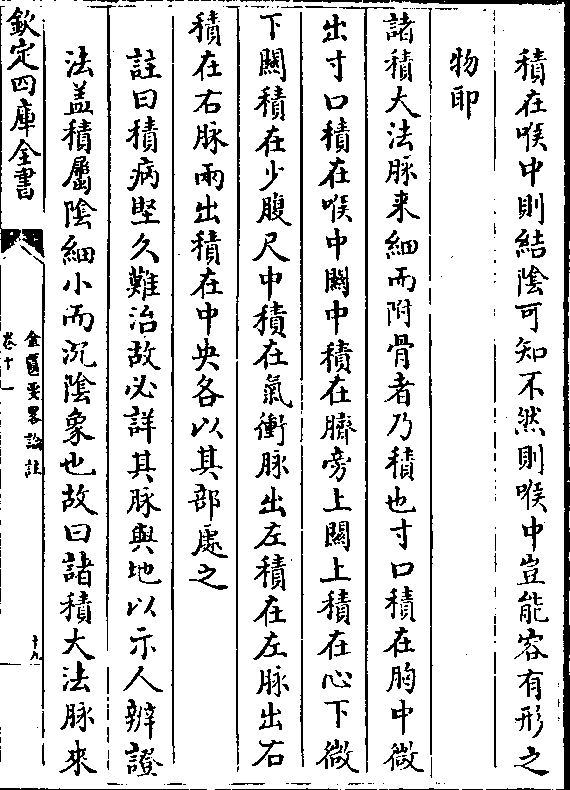 積在喉中則結陰可知不然則喉中豈能容有形之
物耶
諸積大法脉来細而附骨者乃積也寸口積在胷中微
出寸口積在喉中關中積在臍旁上關上積在心下微
下關積在少腹尺中積在氣衝脉出左積在左脉出右
積在右脉兩出積在中央各以其部處之
註曰積病堅久難治故必詳其脉與地以示人辨證
法盖積屬陰細小而沉陰象也故曰諸積大法脉來
欽定四庫全書
金匱要畧論註
卷十一
十九